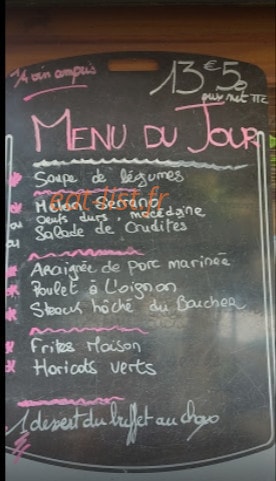 1/4 vin compris
13€50
prix net TTC
MENU DU JOUR
* Soupe de légumes
* Melon Serrano
ou Oeufs durs, macédoine
ou Salade de Crudités
* Araignée de porc marinée
* Poulet à L'oignon
* Steack hôché du Boucher
* Frites Maison
* Haricots verts
1 dessert du buffet au choix
eat-list.fr